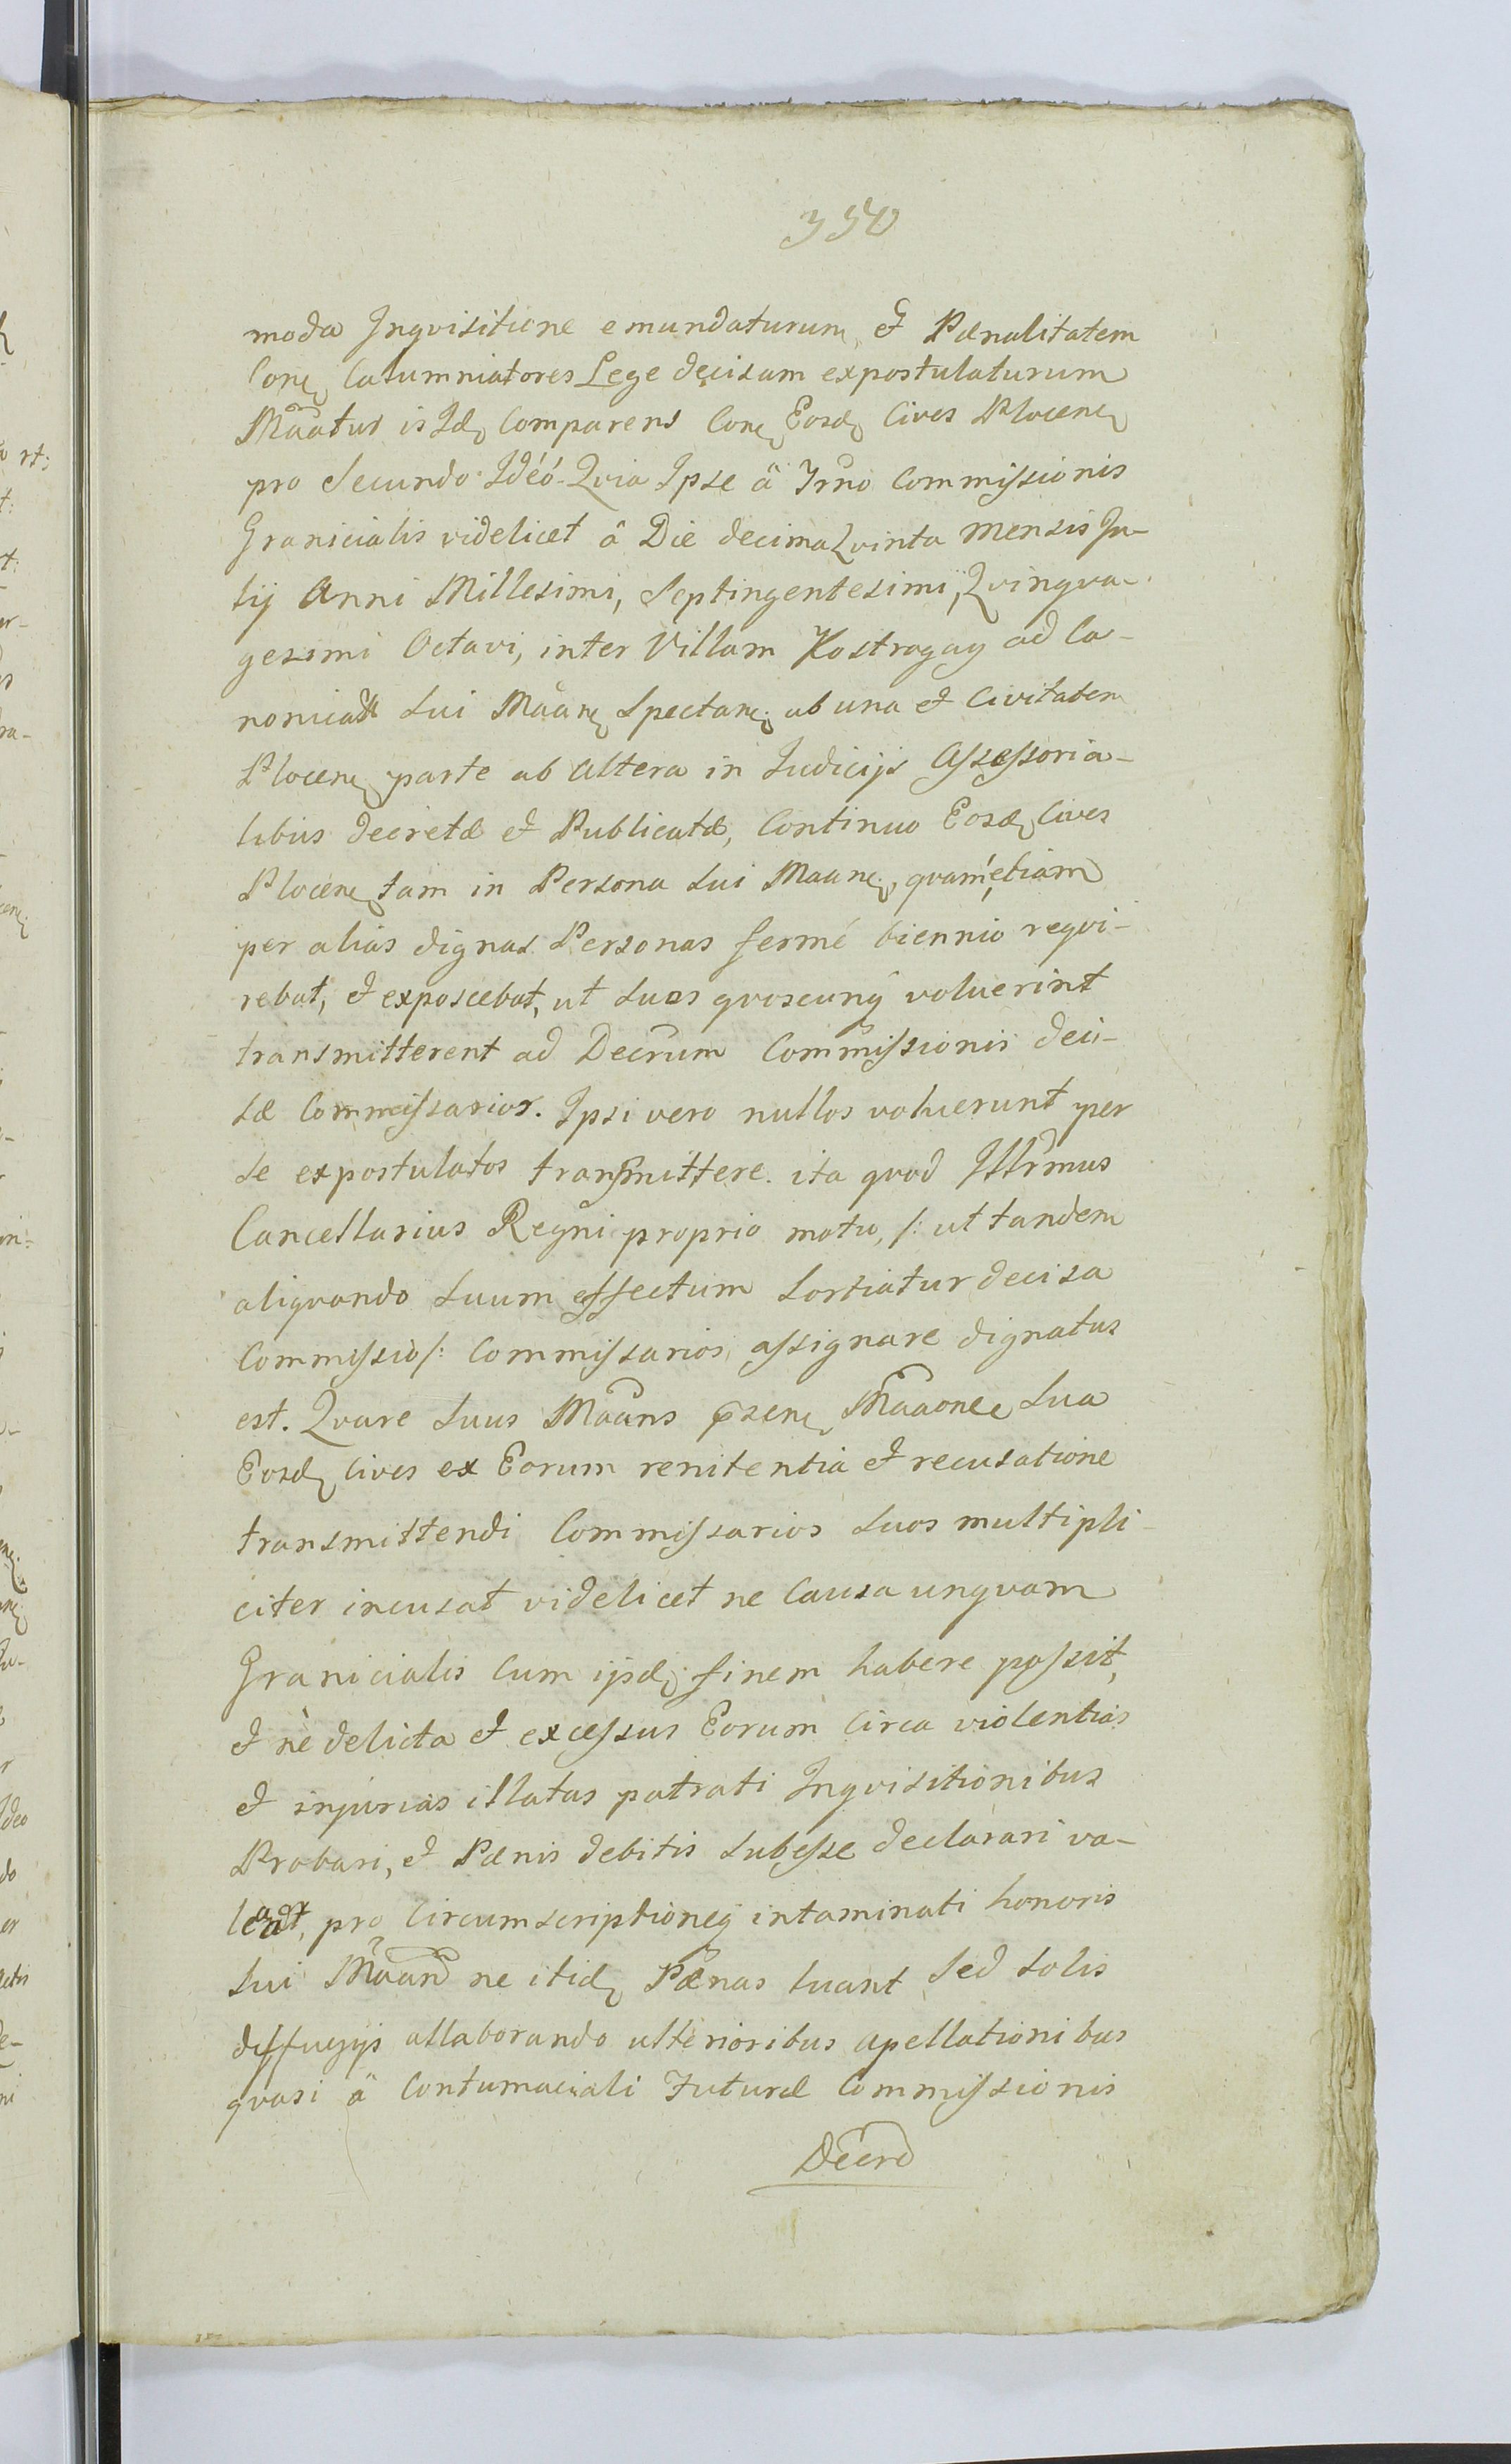 350
moda Inqvisitione emundaturum, et Pænalitatem
Conę Calumniatores Lege decisam expostulaturum
Maatus is Idę Comparens Conę Eosdę Cives Plocenę
pro Secundo Ideó. Qvia Ipse â Trno Commissionis
Granicialis videlicet â Die decima Qvinta Mensis Ju-
lij Anni Millesimi, Septingentesimi, Qvinqva-
gesimi Octavi, inter Villam Kostrogay ad Ca-
nonicat Sui Maanę Spectanę ab una et Civitatem
Plocenę parte ab altera in Judicijs Assessoria-
libus decretæ et Publicatæ, Continuo Eosdę Cives
Plocenę tam in Persona Sui Maanę, qvam etiam
per alias dignas Personas fermé biennio reqvi-
rebat, et exposcebat, ut Suos qvoscunq voluerint
transmitterent ad Decrum Commissionis deci-
sæ Commissarios. Ipsi vero nullos voluerunt per
se expostulatos transmittere. ita qvod Illrmus
Cancellarius Regni proprio motu, /: ut tandem
aliqvando Suum effectum Sortiatur decisa
Commissio /: Commissarios assignare dignatus
est. Qvare Suus Maans psenę Maaone Sua
Eosdę Cives ex Eorum renitentia et recusatione
transmittendi Commissarios Suos multipli-
citer incusat videlicet ne Causa unqvam
Granicialis Cum ijsdę finem habere possit,
et nè delicta et excessus Eorum Circa violentias
et injurias illatas patrati Inqvisitionibus
Probari, et Pænis debitis Subesse declarari va-
leant, pro Circumscriptioneq intaminati honoris
Sui Maand ne itidę Pænas luant Sed Solis
diffugijs allaborando ulterioribus apellationibus
qvasi â Contumaciali Futuræ Commissionis
Decro